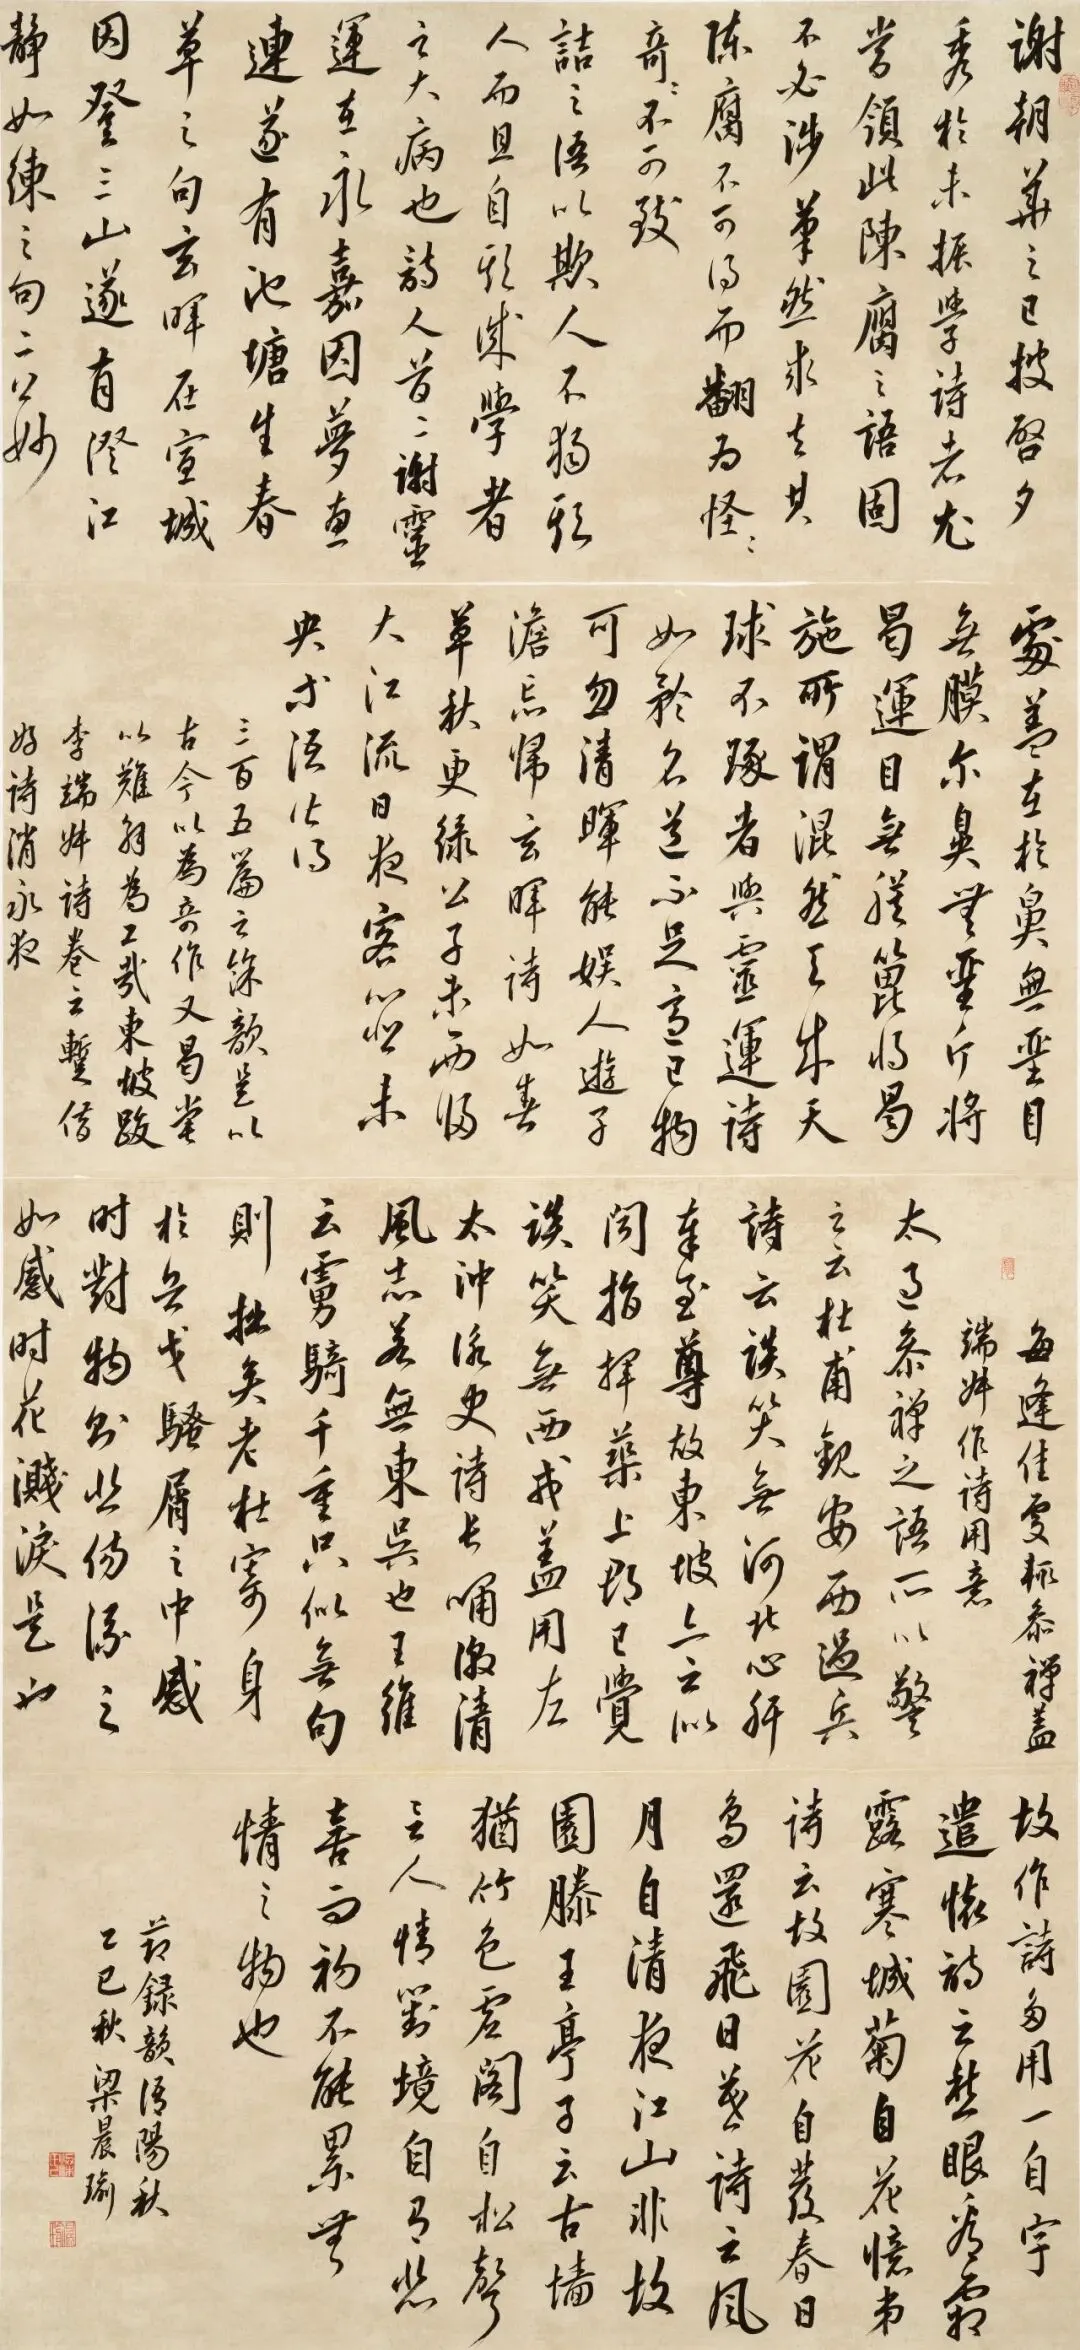 謝朝華之已披啓夕
秀於未振學詩者尤
當領此陳腐之語固
不必涉筆然求去其
陈腐不可得而翻为怪〻
奇〻不可致
詰之语以欺人不独欺
人而且自欺诚學者
之大病也詩人首二謝靈
運在永嘉因夢惠
連遂有池塘生春
草之句玄暉在宣城
因登三山遂有澄江
静如练之句二公妙
處盖在於鼻無堊目
無膜尔鼻無堊斤將
曷運目無膜篦将曷
施所謂混然天成天
球不琢者與靈運詩
如矜名道不足適己物
可忽清暉能娱人遊子
澹忘归玄暉诗如春
草秋更绿公子未西歸
大江流日夜客心悲未
央等语皆得
三百五篇之餘韻是以
古今以為奇作又曷嘗
以難解為工哉東坡跋
李端叔詩卷云暫借
好诗消永夜
每逢佳處輒参禅盖
端叔作诗用意
太過参禅之語所以警
之云杜甫觀安西過兵
詩云談笑無河北心肝
奉至尊故東坡亦云似
闻指挥築上郡已覺
談笑無西戎盖用左
太冲詠史诗長嘯激清
風志若無東吳也王維
云虜騎千重只似無句
則拙矣老杜寄身
於兵戈騷屑之中感
时對物则悲伤係之
如感时花濺淚是也
故作詩多用一自字
遣懷詩云愁眼看霜
露寒城菊自花憶弟
诗云故園花自發春日
鸟還飛日暮詩云风
月自清夜江山非故
園滕王亭子云古墙
猶竹色虚阁自松聲
言人情對境自有悲
喜而初不能累無
情之物也
節録韻语陽秋
乙巳秋梁晨瑜